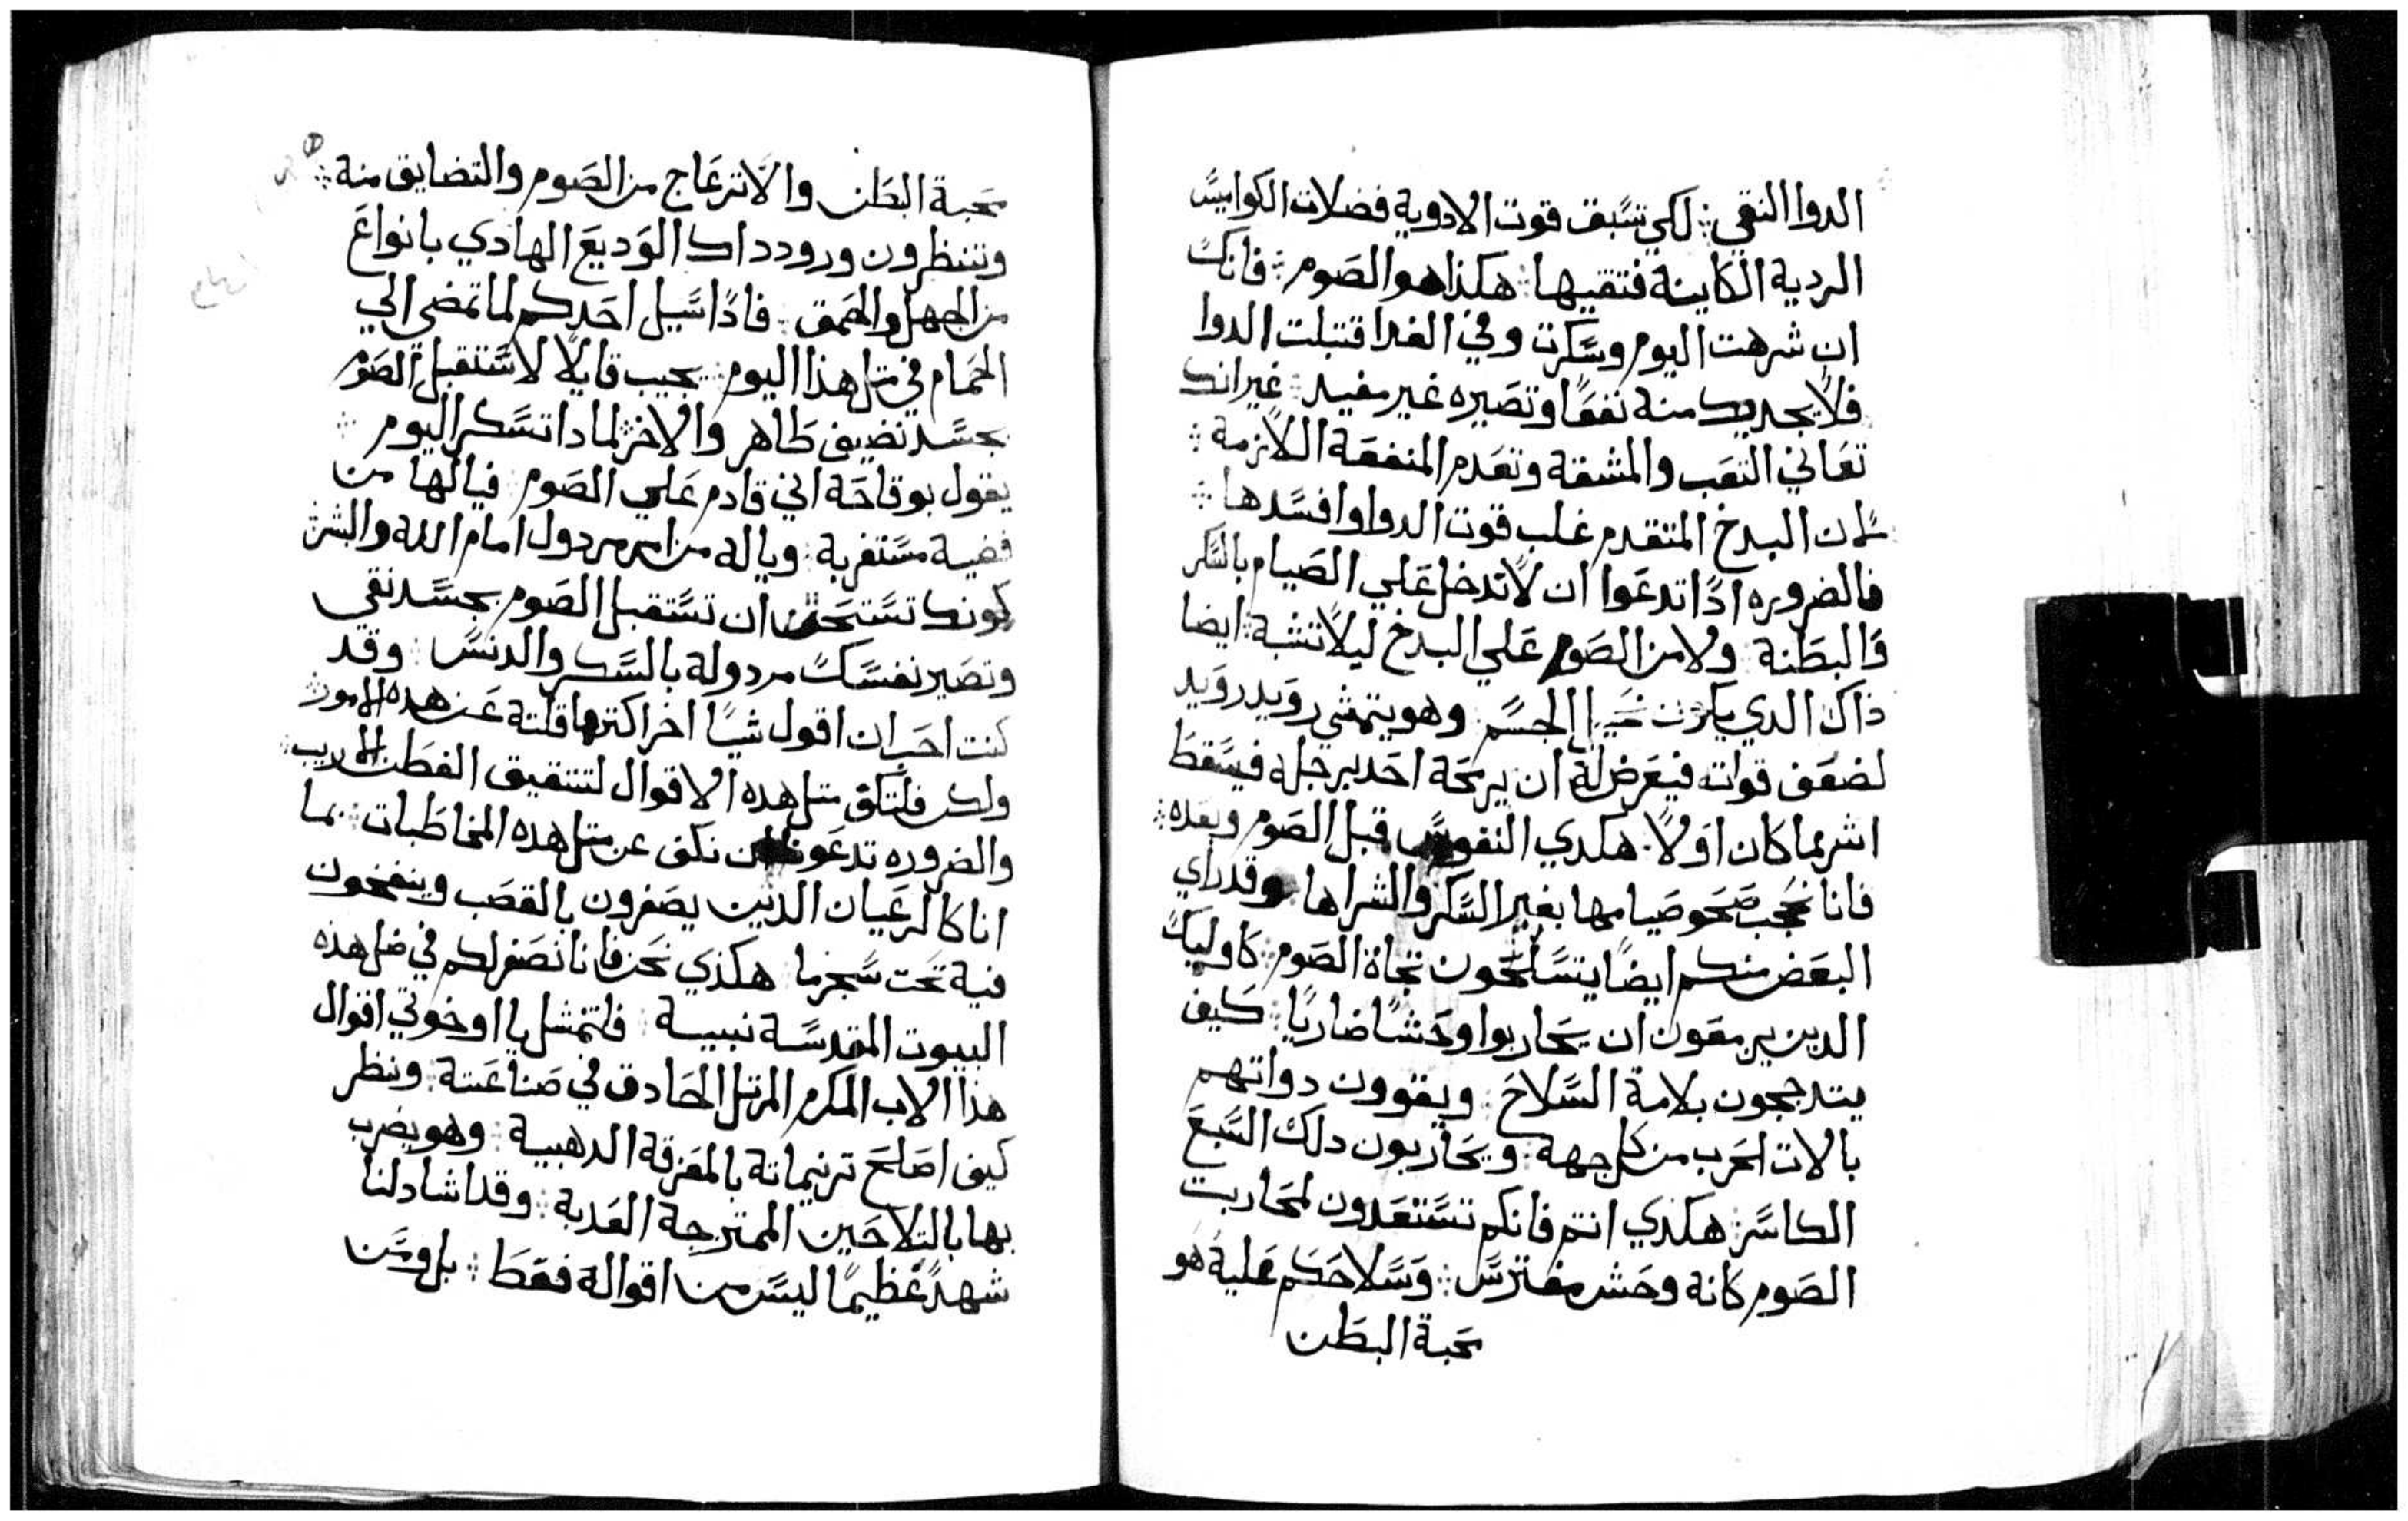 الدوا النقي ⁘ لكي تسبق قوت الادوية فضلات الكواميس
الردية الكاينة فتقيها ⁘ هكذا هو الصوم ⁘ فانك
ان شرهت اليوم وسكرت وفي الغدا قتبلت الدوا
فلا يجديك منة نفعًا وتصيره غير مفيد ⁘ غير انك
تعاني التعب والمشقة وتعدم المنفعة اللازمة ⁘
لان البدخ المتقدم غلب قوت الدوا وافسدها ⁘
فالضروره ادًا تدعوا ان لا تدخل علي الصيام بالسكر
والبطنة ⁘ ولا من الصوم علي البدخ ليلا تشبة ⁘ ايضا
ذاك الدي الجسم ⁘ وهو يتمشي رويد رويد
لضعف قواته فيعرض لة ان يرمحة احد برجله فيسقط
اشر مما كان اولًا ⁘ هكدي النفوس قبل الصوم وبعده ⁘
فانا صحو صيامها بغير السكر والشراها ⁘ وقد راي
البعض منكم ايضًا يتسلحون تجاة الصوم ⁘ كاوليك
الدين يرمعون ان يحاربوا وحشًا ضاريًا ⁘ كيف
يتدججون بلامة السلاح ⁘ ويقوون دواتهم
بالات الحرب من كل جهة ⁘ ويحاربون دلك السبع
الكاسر ⁘ هكدي انتم فانكم تستعدون لمحاربت
الصوم كانه وحش مفترس ⁘ وسلاحكم علية هو
محبة البطن
محبة البطن والانزعاج من الصوم والتضايق منة ⁘
وتنتظرون ورود داك الوديع الهادي بانواع
من الجهل والحمق ⁘ فادًا سيل احدكم لما تمضي الي
الحمام في مثل هذا اليوم ⁘ يجيب قايلًا لاستقبل الصوم
بجسد نضيف طاهر والاخر ⁘ لمادا تسكر اليوم ⁘
يقول بوقاحة اني قادم علي الصوم ⁘ فيالها من
قضية مستغربة ⁘ وياله من امر مردول امام الله والبشر
كونك تستحق ان تستقبل الصوم بجسد نقي
وتصير نفسك مردولة بالسكر والدنس ⁘ وقد
كنت احب ان اقول شيًا اخر اكتر مما قلتة عن هده الامور ⁘
ولكن فلتكف متل هده الاقوال لتتقيف الفطن اللبيب ⁘
والضروره تدعونا ان نكف عن متل هده المخاطبات ⁘ بما
انا كالرعيان الدين يصفرون بالقصب وينفخون
فية تحت شجرما ⁘ هكذي نحن فانا نصفر لكم في ضل هذه
البيوت المقدسة نبيية ⁘ فلتمثل يا اوخوتي اقوال
هذا الاب المكرم المرتل الحادق في صناعتة ⁘ وننظر
كيف اصلح ترنيماتة بالمعزقة الدهبية ⁘ وهو يضرب
بها بالتلاحين الممتزجة العدبة ⁘ وقد اشاد لنا
شهدًا عظيمًا ليس من اقوالة فقط ⁘ بل ومن